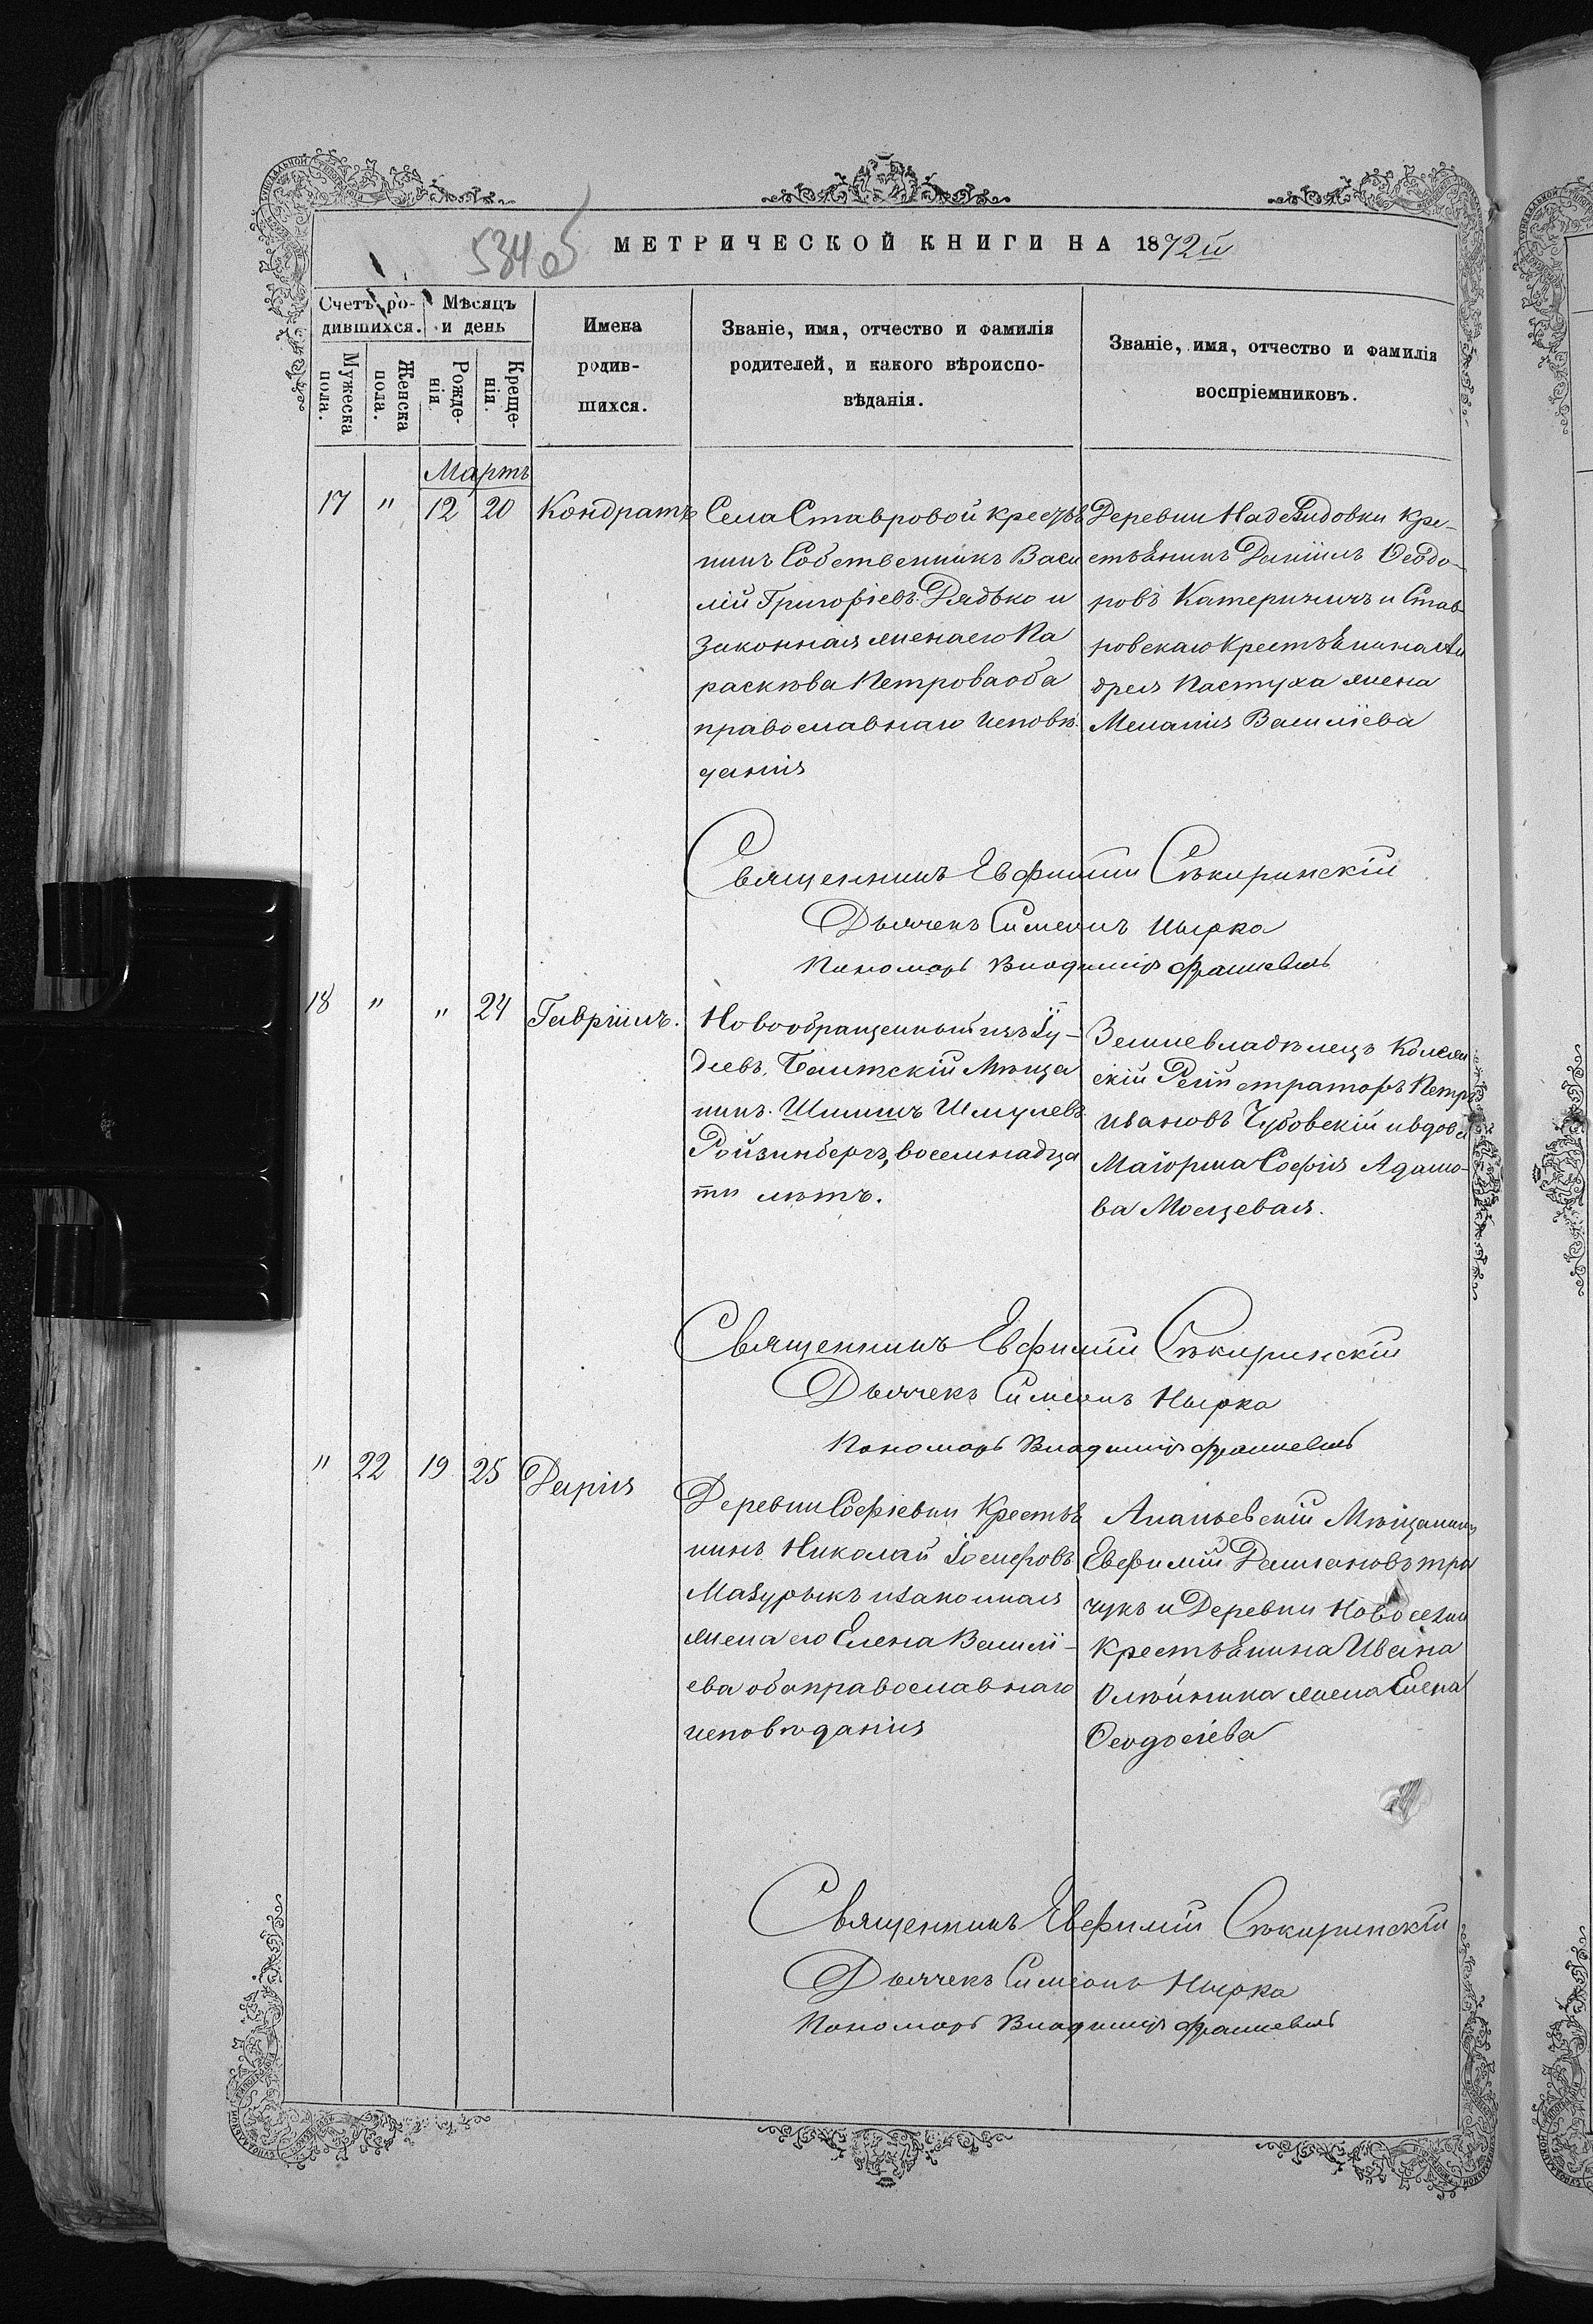 534 об
МЕТРИЧЕСКОЙ КНИГИ НА 1872й
Счетъ ро-
дившихся.
Мѣсяцъ
и день
Мужеска
пола.
Женска
пола.
Рожде-
нія.
Креще-
нія.
Имена
родив-
шихся.
Званіе, имя, отчество и фамилія
родителей, и какого вѣроиспо-
вѣданія.
Званіе, имя, отчество и фамилія
воспріемниковъ.
Мартъ
17 " 12 20 Кондратъ
Села Ставровой кресть
нинъ Собственникъ Васи
лій Григоріевъ Дядько и
законная жена его Па
раскева Петрова оба
православнаго исповѣ-
данія
Деревни Кре-
стьянинъ Даніилъ Ѳеодо-
ровъ Катеричичъ и Став
ровскаго крестьянина Ан
дрея Пастуха жена
Меланія Василіева
Священникъ Евфимій Сѣкиринскій
Дьячекъ Симеонъ Нырка
Пономарь Владиміръ
18 " " 24 Гавріилъ.
Новообращенный изъ Іу-
деевъ, Балтскій Мѣща
нинъ Шмулевъ
Ройзинбергъ, восемнадца
ти лѣтъ.
Землевладѣлецъ Коллеж
скій Регистраторъ Петръ
Ивановъ Чубовскій и вдова
Маіорша Софія Адамо-
ва Мосцевая.
Священникъ Евфимій Сѣкиринскій
Дьячекъ Симеонъ Нырка
Пономарь Владиміръ
" 22 19 25 Дарія
Деревни Софіевки Крестья
нинъ Николай Іосифовъ
Мазурыкъ и законная
жена его Елена Василі-
ева оба православнаго
исповѣданія
Ананьевскій Мѣщанинъ
Евфимій Даміановъ
чукъ и Деревни Новоселки
крестьянина Ивана
Олѣйника жена Елена
Ѳеодосіева
Священникъ Евфимій Сѣкиринскій
Дьячекъ Симеонъ Нырка
Пономарь Владиміръ